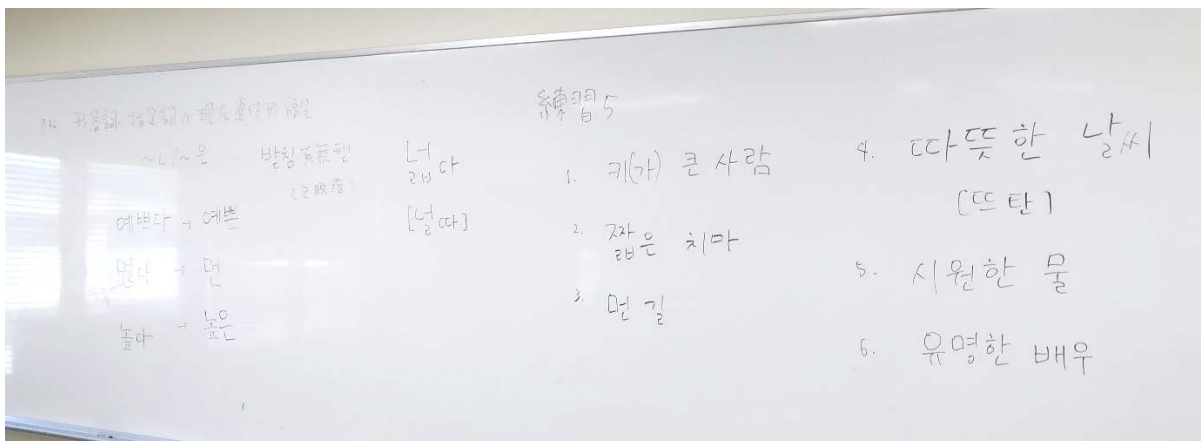 形容詞、指定詞の現在連体形語尾
~ㄴ/~은 받침有無型
(ㄹ脱落)
예쁘다 → 예쁜
멀다 → 먼
높다 → 높은
넓다
[널따]
練習5
1. 키(가) 큰 사람
2. 짧은 치마
3. 먼 길
4. 따뜻한 날씨
[뜨탄]
5. 시원한 물
6. 유명한 배우